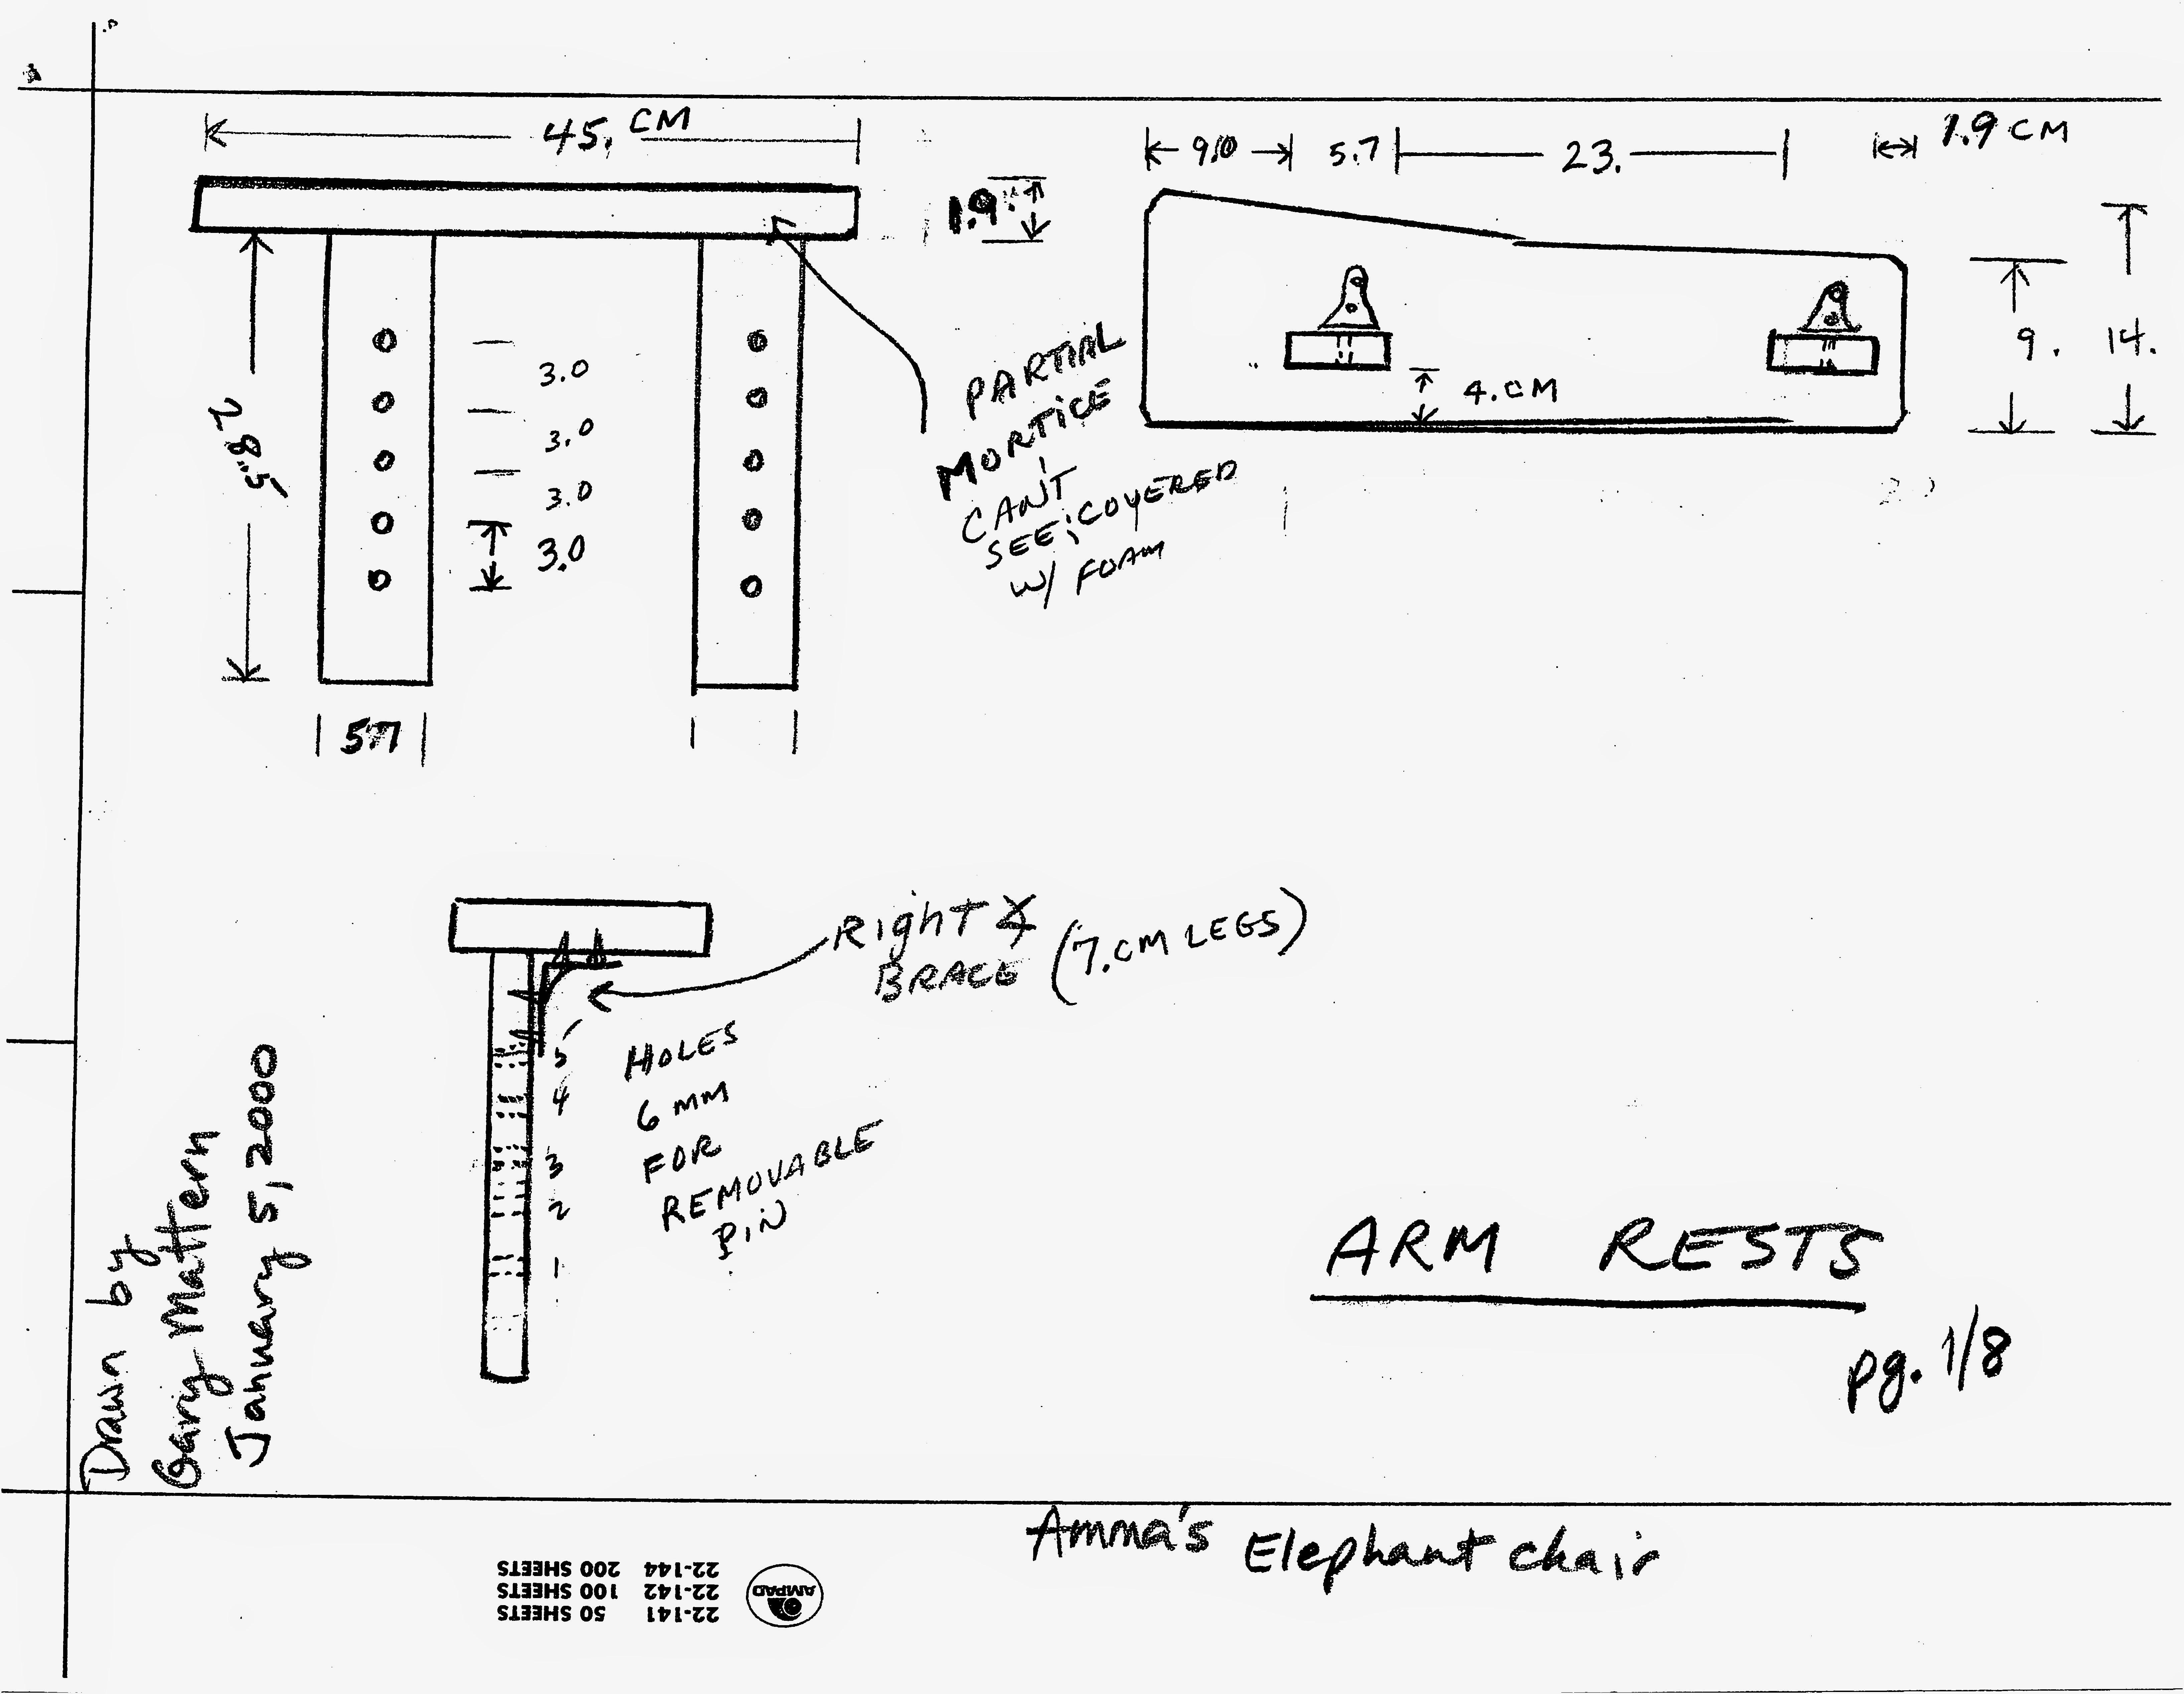 45. CM
1.9
28.5
3.0
3.0
3.0
3.0
5.7
PARTIAL
MORTICE
CAN'T
SEE; COVERED
W/ FOAM
9.0 5.7 23. 1.9 CM
4. CM
9. 14.
Right ∡
BRACE (7. CM LEGS)
5
4
3
2
1
HOLES
6 MM
FOR
REMOVABLE
PIN
Drawn by
Gary Mattern
January 5, 2000
ARM RESTS
pg. 1/8
Amma's Elephant chair
22-141 50 SHEETS
22-142 100 SHEETS
22-144 200 SHEETS
AMPAD